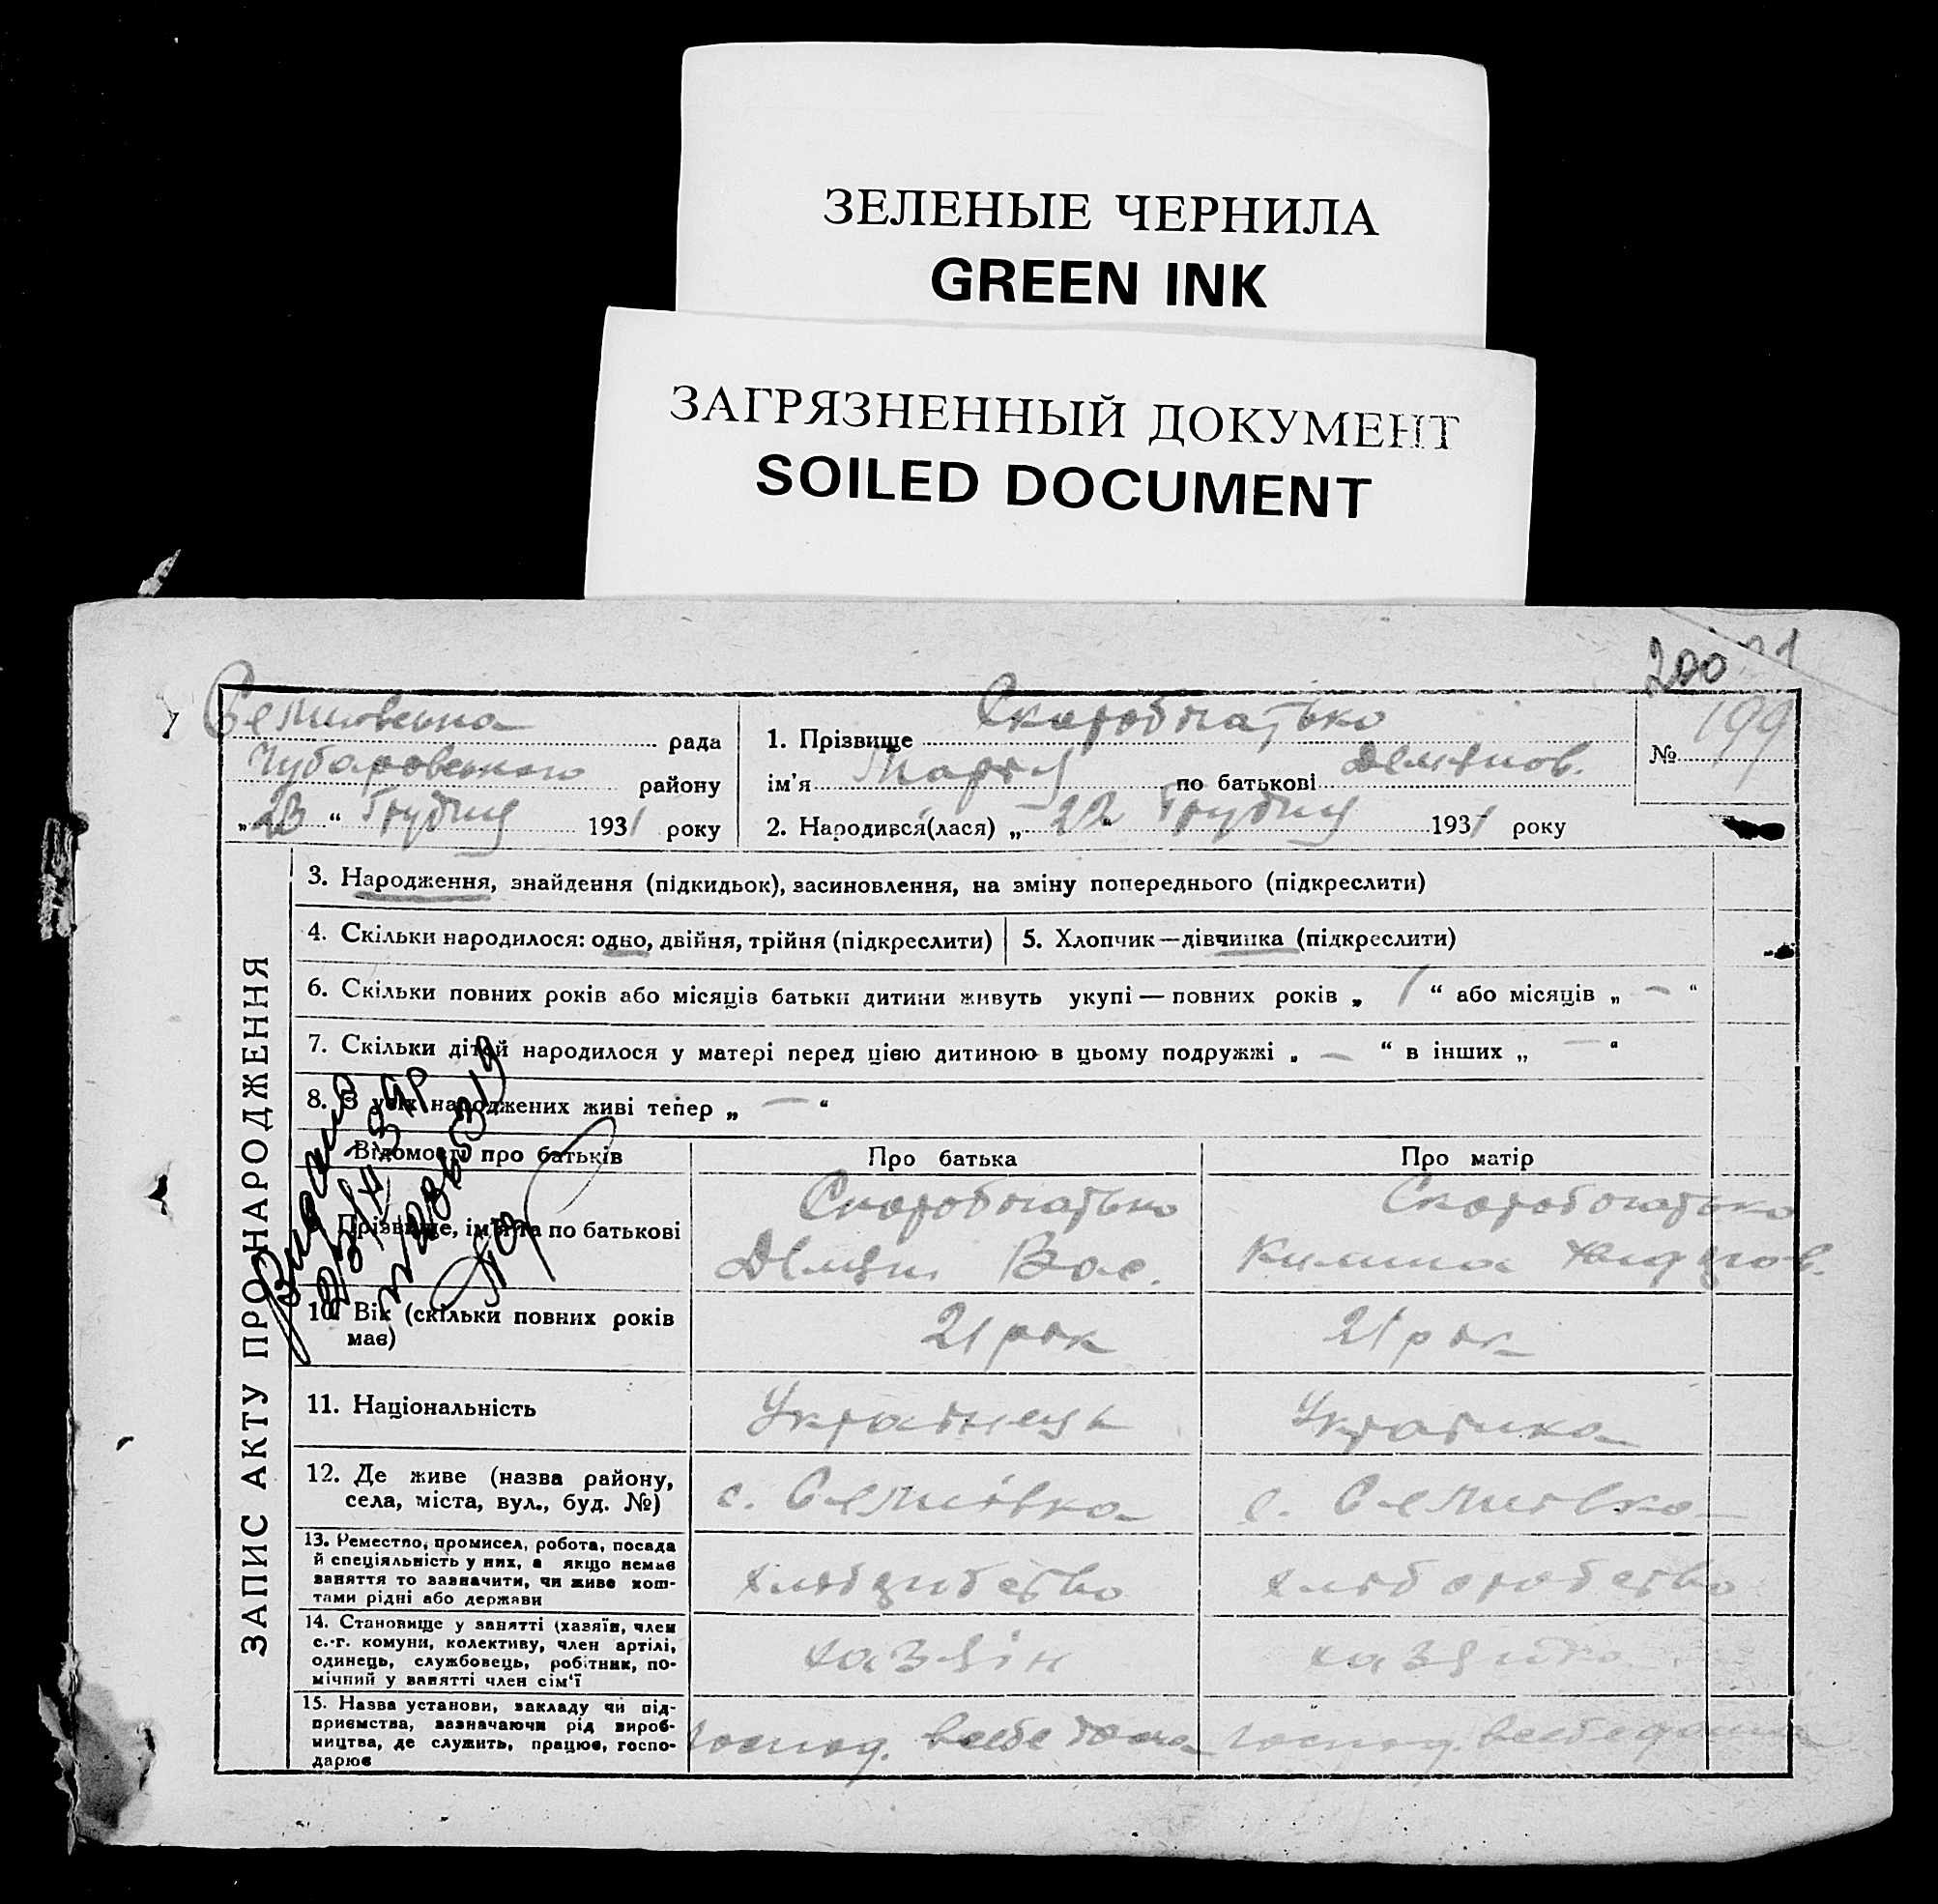 ЗЕЛЕНЫЕ ЧЕРНИЛА
GREEN INK
ЗАГРЯЗНЕННЫЙ ДОКУМЕНТ
SOILED DOCUMENT
200
рада
Чубаровського району
„23“ Грудня 1931 року
1. Прізвище Скоробогатько
ім'я Марія по батькові Демянов.
2. Народився(лася) „22“ Грудня 1931 року
№ 199
ЗАПИС АКТУ ПРО НАРОДЖЕННЯ
3. Народження, знайдення (підкидьок), засиновлення, на зміну попереднього (підкреслити)
4. Скільки народилося: одно, двійня, трійня (підкреслити)
5. Хлопчик—дівчинка (підкреслити)
6. Скільки повних років або місяців батьки дитини живуть укупі — повних років „ 1 “ або місяців „ — “
7. Скільки дітей народилося у матері перед цією дитиною в цьому подружжі „ — “ в інших „ — “
8. З усіх народжених живі тепер „ — “
Відомості про батьків
Про батька
Про матір
Прізвище, ім'я та по батькові
Скоробогатько
Демян Вас.
Скоробогатько
Килина
10. Вік (скільки повних років
має)
21 рок
21 рок
11. Національність
Українець
Українка
12. Де живе (назва району,
села, міста, вул., буд. №)
с.
с.
13. Ремество, промисел, робота, посада
й спеціяльність у них, а якщо немає
заняття то зазначити, чи живе кош-
тами рідні або держави
хліборобство
14. Становище у занятті (хазяїн, член
с.-г. комуни, колективу, член артілі,
одинець, службовець, робітник, по-
мічний у занятті член сім'ї
хазяїн
хазяйка
15. Назва установи, закладу чи під-
приємства, зазначаючи рід вироб-
ництва, де служить, працює, госпо-
дарює
господ. всебе дома
господ. всебе дома